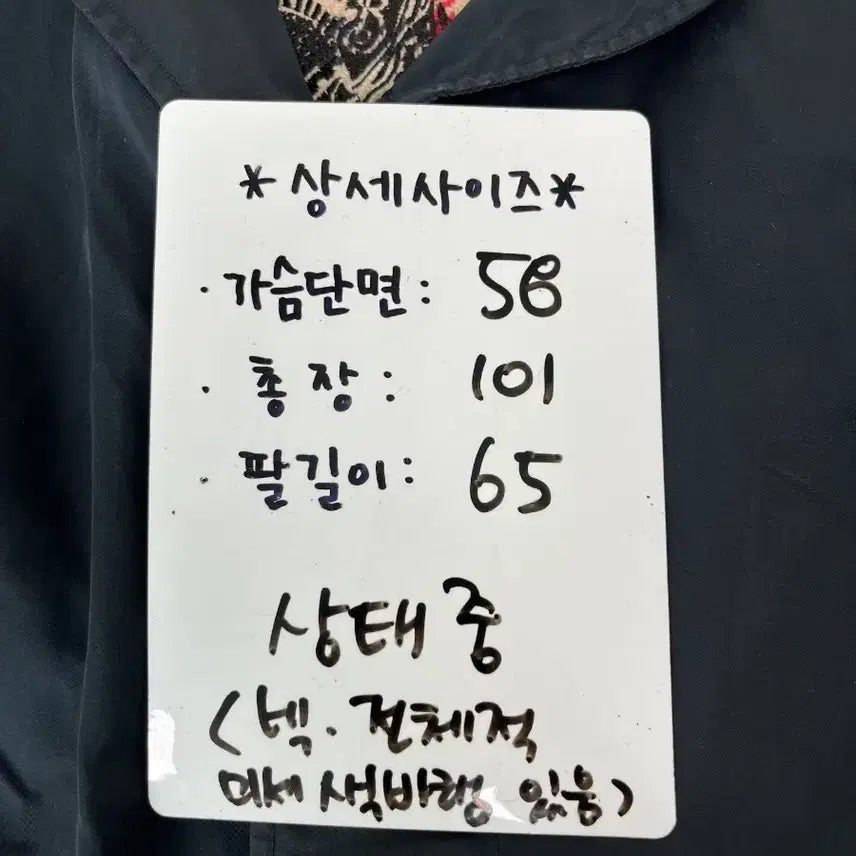 *상세사이즈*
· 가슴단면: 58
· 총장: 101
· 팔길이: 65
상태 중
(넥. 전체적
미세 색바램 있음)